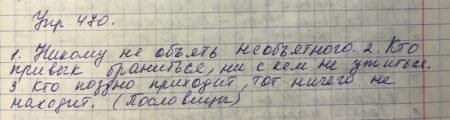 Упр 470.
1. Никому не объять необъятного. 2. Кто
привык браниться, ни с кем не ужиться.
3. Кто поздно приходит, тот ничего не
находит. (Пословицы)